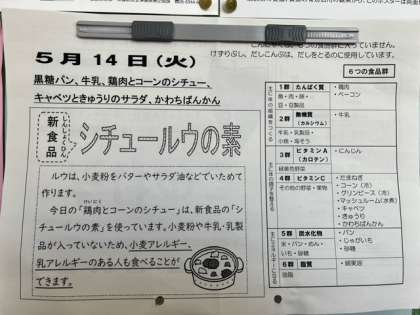 けずりぶし、だしこんぶは、だしをとるのに使用しています。
5月14日(火)
黒糖パン、牛乳、鶏肉とコーンのシチュー、
キャベツときゅうりのサラダ、かわちばんかん
新食品
しんしょくひん
シチュールウの素
ルウは、小麦粉をバターやサラダ油などでいためて
作ります。
けいにく
今日の「鶏肉とコーンのシチュー」は、新食品の「シ
チュールウの素」を使っています。小麦粉や牛乳・乳製
品が入っていないため、小麦アレルギー、
乳アレルギーのある人も食べることが
できます。
6つの食品群
1群 たんぱく質
魚・肉・卵・
豆・豆製品
・鶏肉
・ベーコン
2群 無機質
(カルシウム)
牛乳・乳製品・
小魚・海そう
・牛乳
3群 ビタミンA
(カロテン)
緑黄色野菜
・にんじん
4群 ビタミンC
その他の野菜・果物
・たまねぎ
・コーン(冷)
・グリンピース(冷)
・マッシュルーム(水煮)
・キャベツ
・きゅうり
・かわちばんかん
5群 炭水化物
米・パン・めん・
いも・砂糖
・パン
・じゃがいも
・砂糖
6群 脂質
油脂
・綿実油